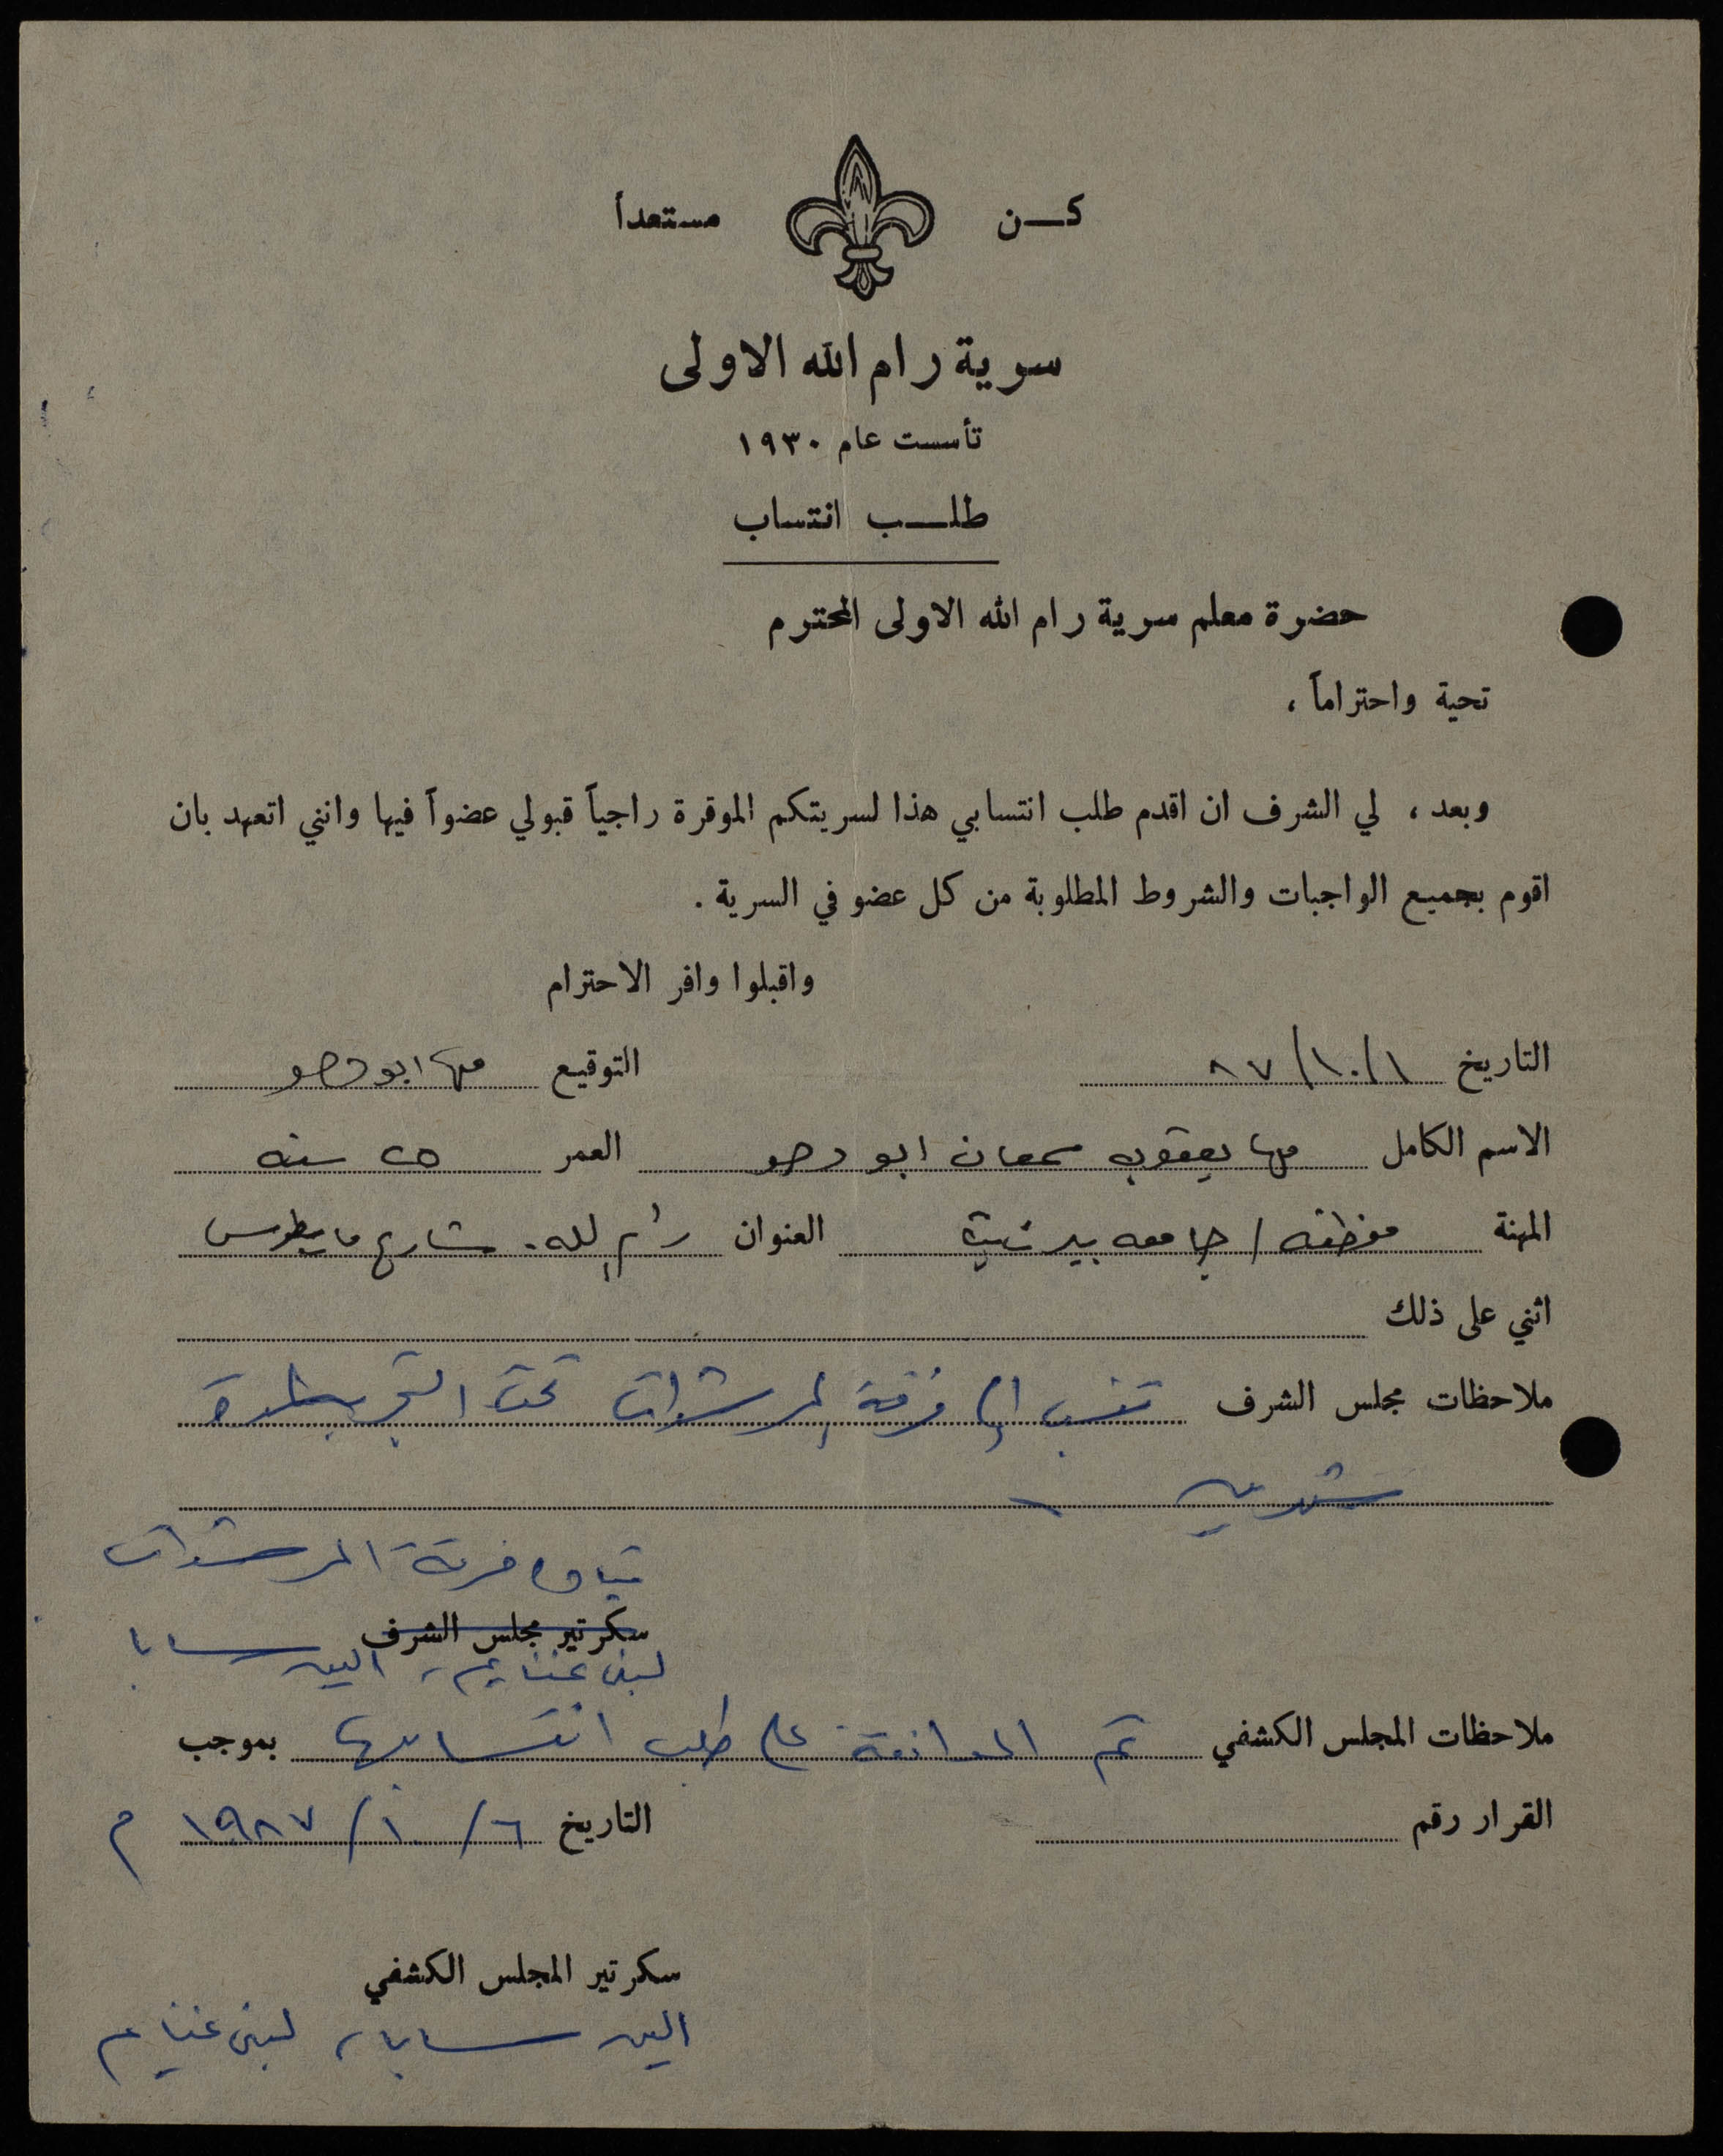 كـن مستعداً
سرية رام الله الاولى
تأسست عام ١٩٣٠
طلـــب انتساب
حضرة معلم سرية رام الله الاولى المحترم
تحية واحتراماً ،
وبعد ، لي الشرف ان اقدم طلب انتسابي هذا لسريتكم الموقرة راجياً قبولي عضواً فيها وانني اتعهد بان
اقوم بجميع الواجبات والشروط المطلوبة من كل عضو في السرية .
واقبلوا وافر الاحترام
التاريخ ١/١٠/٨٧ التوقيع مها ابو دحو
الاسم الكامل مها يعقوب سمعان ابو دحو العمر ٢٥ سنه
المهنة موظفه / جامعه بيرزيت العنوان رام الله - شارع مار بطرس
اثني على ذلك
ملاحظات مجلس الشرف تنسب إلى فرقة المرشدات تحت التجربة لمدة
شهرين
قيادة فرقة المرشدات
سكرتير مجلس الشرف
لبنى غنايم، الين سابا
ملاحظات المجلس الكشفي تم الموافقة على طلب انتسابها بموجب
القرار رقم التاريخ ٦/١٠/١٩٨٧ م
سكرتير المجلس الكشفي
الين سابا، لبنى غنايم